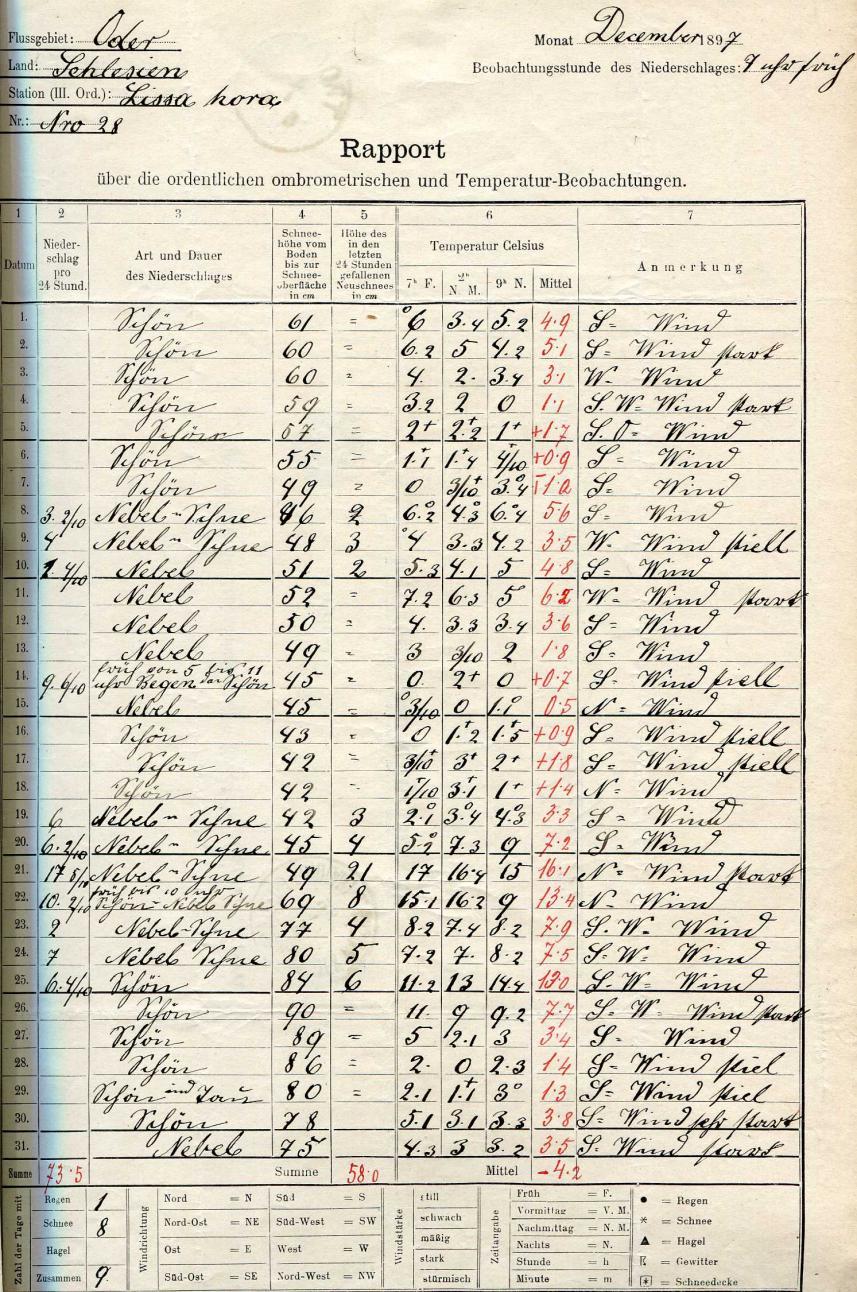 Flussgebiet: Oder
Monat December 1897
Land: Schlesien
Beobachtungsstunde des Niederschlages: 7 uhr früh
Station (III. Ord.): Lissa hora
Nr.: Nro 28
Rapport
über die ordentlichen ombrometrischen und Temperatur-Beobachtungen.
1 2 3 4 5 6 7
Datum Niederschlag pro 24 Stund. Art und Dauer des Niederschlages Schneehöhe vom Boden bis zur Schneeoberfläche in cm Höhe des in den letzten 24 Stunden gefallenen Neuschnees in cm Temperatur Celsius Anmerkung
7h F. 2h N. M. 9h N. Mittel
1. Schön 61 = °6 3·4 5·2 4·9 S= Wind
2. Schön 60 = 6·2 5 4·2 5·1 S= Wind stark
3. Schön 60 = 4. 2· 3·4 3·1 W- Wind
4. Schön 59 = 3·2 2 0 1·1 S. W= Wind stark
5. Schön 57 = 2+ 2·2+ 1+ +1·7 S. O= Wind
6. Schön 55 = 1·1+ 1·4+ 4/10 +0·9 S= Wind
7. Schön 49 = 0 3/10+ 3·4° S= Wind
8. 3. 2/10 Nebel = Schne 46 2 6·2° 4·3° 6·4° 5·6 S= Wind
9. 4 Nebel = Schne 48 3 °4 3·3 4·2 3·5 W- Wind stiell
10. 1. 4/10 Nebel 51 2 5·3 4·1 5 4·8 S= Wind
11. Nebel 52 = 7·2 6·3 5 6·2 W= Wind stark
12. Nebel 50 = 4. 3·3 3·4 3·6 S= Wind
13. Nebel 49 = 3 3/10 2 1·8 S= Wind
14. 9. 6/10 früh von 5 bis 11 uhr Regen dan Schön 45 = 0 2+ 0 +0·7 S= Wind stiell
15. Nebel 45 = 3/10° 0 1·1° 0·5 N= Wind
16. Schön 43 = 0 1·2+ 1·5+ +0·9 S= Wind stiell
17. Schön 42 = 3/10+ 3+ 2+ +1·8 S= Wind stiell
18. Schön 42 = 1/10+ 3·1+ 1+ +1·4 N= Wind
19. 6 Nebel = Schne 42 3 2·1° 3·4° 4·3° 3·3 S= Wind
20. 6· 2/10 Nebel = Schne 45 4 5·2° 7·3 9 7·2 S= Wind
21. 17 8/10 Nebel = Schne 49 21 17 16·4 15 16·1 N= Wind stark
22. 10. 2/10 früh bis 10 uhr Schön = Nebel Schne 69 8 15·1 16·2 9 13·4 N- Wind
23. 2 Nebel-Schne 77 4 8·2 7·4 8·2 7·9 S. W= Wind
24. 7 Nebel Schne 80 5 7·2 7· 8·2 7·5 S= W= Wind
25. 6·4/10 Schön 84 6 11·2 13 14·4 13·0 S. W= Wind
26. Schön 90 = 11. 9 9·2 7·7 S= W= Wind stark
27. Schön 89 = 5 2·1 3 3·4 S- Wind
28. Schön 86 = 2· 0 2·3 1·4 S= Wind stiel
29. Schön und Tau 80 = 2·1 1·1+ 3° 1·3 S= Wind stiel
30. Schön 78 5·1 3·1 3·3 3·8 S= Wind sehr stark
31. Nebel 75 4·3 3 3·2 3·5 S= Wind stark
Summe 73·5 Summe 58·0 Mittel -4·2
Zahl der Tage mit Regen 1
Schnee 8
Hagel
Zusammen 9
Windrichtung Nord = N Süd = S
Nord-Ost = NE Süd-West = SW
Ost = E West = W
Süd-Ost = SE Nord-West = NW
Windstärke still
schwach
mäßig
stark
stürmisch
Zeitangabe Früh = F.
Vormittag = V. M.
Nachmittag = N. M.
Nachts = N.
Stunde = h
Minute = m
● = Regen
* = Schnee
▲ = Hagel
= Gewitter
[*] = Schneedecke